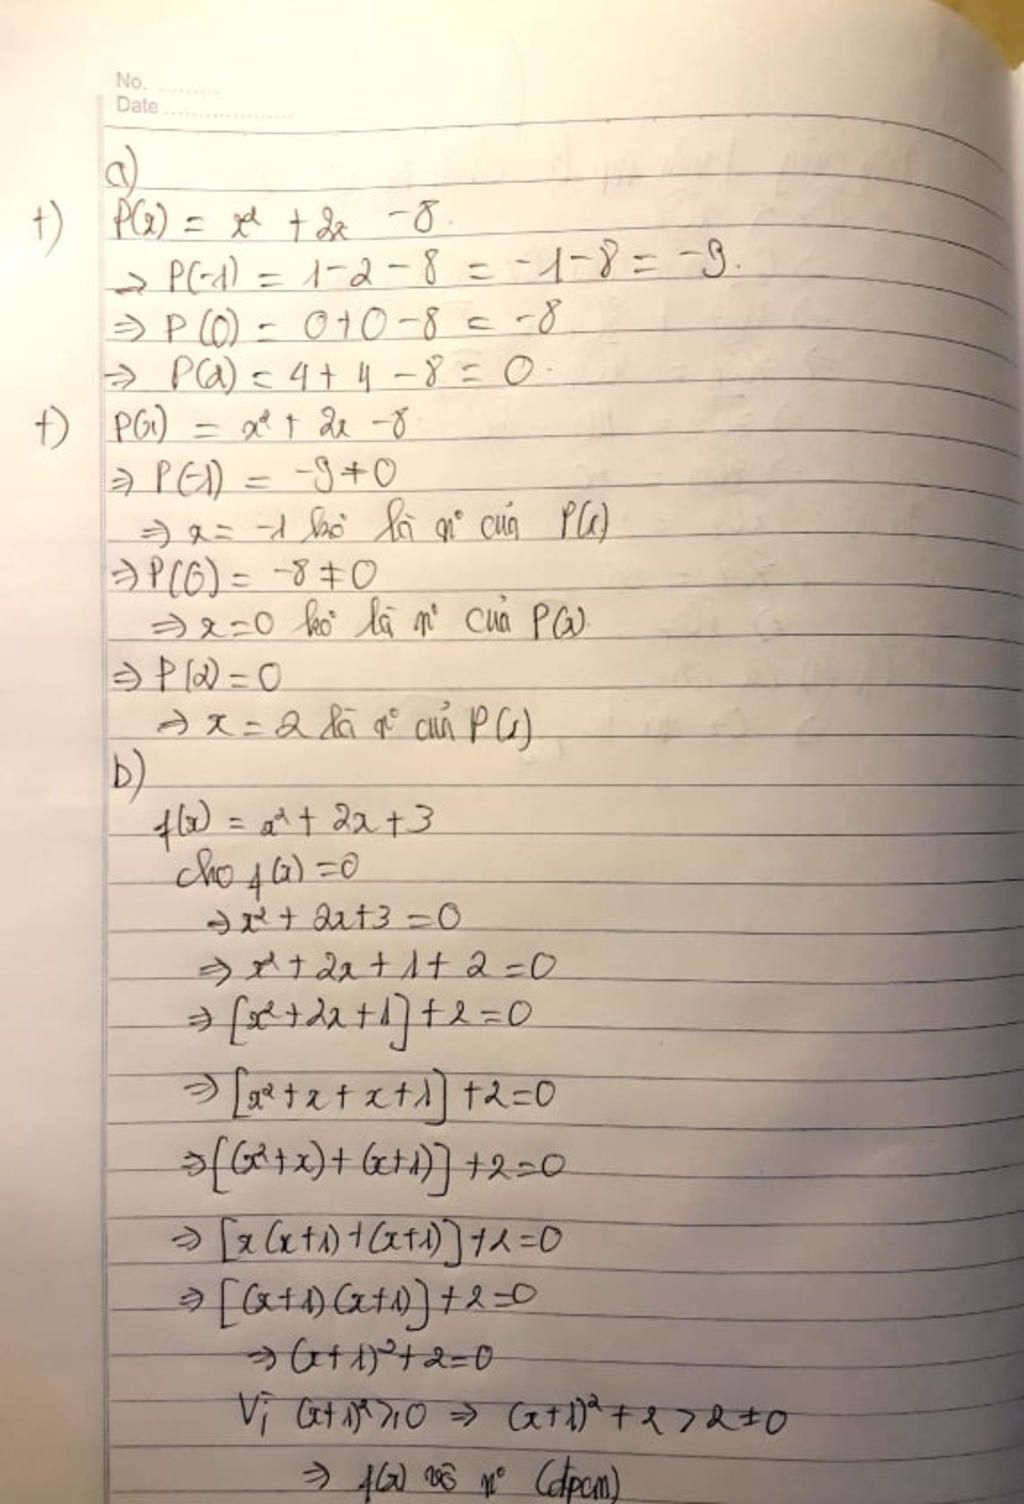 No. ............
Date ......................
a)
+) P(x) = x² + 2x - 8.
⇒ P(-1) = 1-2-8 = -1-8 = -9.
⇒ P(0) = 0+0-8 = -8
⇒ P(2) = 4+4-8 = 0.
+) P(x) = x² + 2x - 8
⇒ P(-1) = -9 ≠ 0
⇒ x = -1 ko là n° của P(x)
⇒ P(0) = -8 ≠ 0
⇒ x=0 ko là n° của P(x)
⇒ P(2) = 0
⇒ x = 2 là n° của P(x)
b)
f(x) = x² + 2x + 3
cho f(x) = 0
⇒ x² + 2x+3 = 0
⇒ x² + 2x + 1 + 2 = 0
⇒ [x²+2x+1]+2=0
⇒ [x²+x+x+1]+2=0
⇒ [(x²+x)+(x+1)]+2=0
⇒ [x(x+1)+(x+1)]+2=0
⇒ [(x+1)(x+1)]+2=0
⇒ (x+1)²+2=0
Vì (x+1)²≥0 ⇒ (x+1)²+2>2≠0
⇒ f(x) vô n° (đpcm)